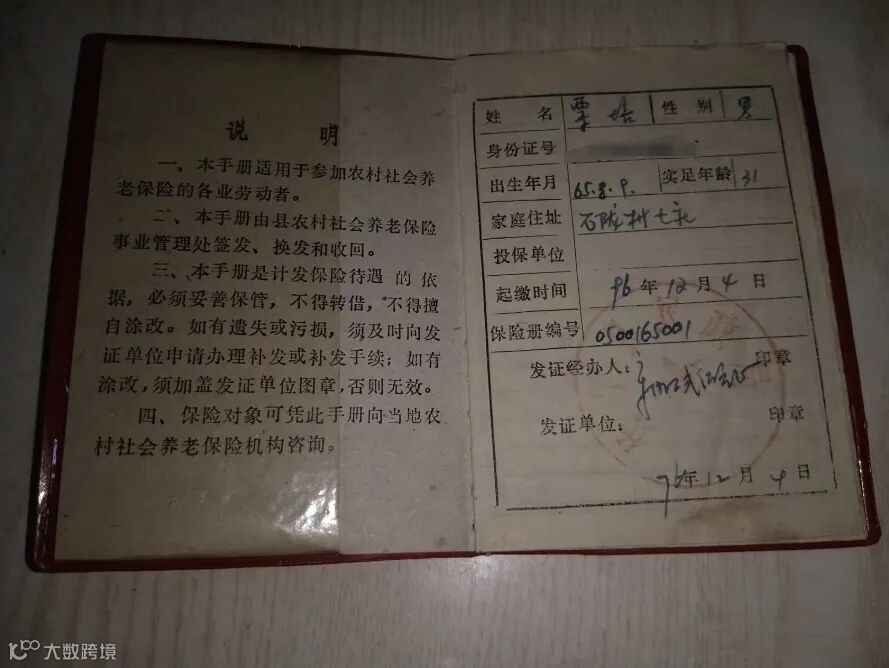 说 明
一、本手册适用于参加农村社会养
老保险的各业劳动者。
二、本手册由县农村社会养老保险
事业管理处签发、换发和收回。
三、本手册是计发保险待遇的依
据，必须妥善保管，不得转借，不得擅
自涂改。如有遗失或污损，须及时向发
证单位申请办理补发或补发手续；如有
涂改，须加盖发证单位图章，否则无效。
四、保险对象可凭此手册向当地农
村社会养老保险机构咨询。
姓 名 性 别 男
身份证号
出生年月 65.8.9. 实足年龄 31
家庭住址 石陇村七
投保单位
起缴时间 96年12月4日
保险册编号 0500165001
发证经办人： 印章
发证单位： 印章
96年12月4日
大数跨境